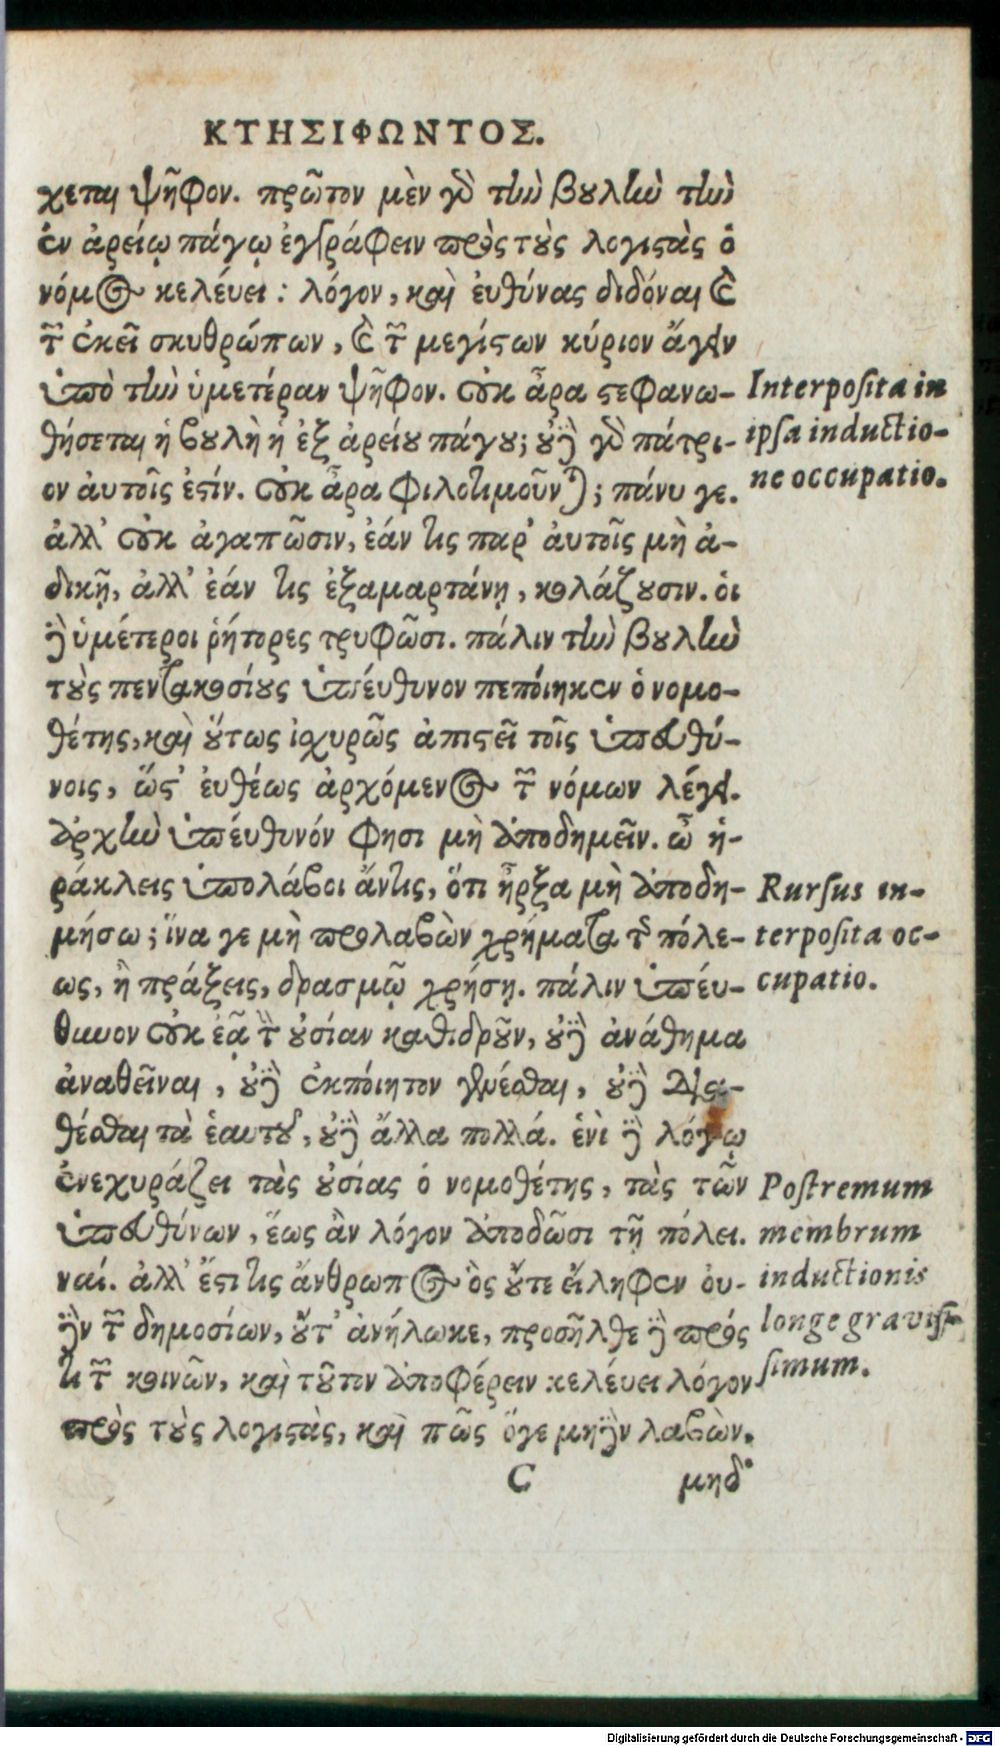 ΚΤΗΣΙΦΩΝΤΟΣ.
χεται ψῆφον. πρῶτον μὲν γὸ τὴν βουλὴν τὴν
ἐν ἀρείῳ πάγῳ ἐγγράφειν πρὸς τοὺς λογιστὰς ὁ
νόμος κελεύει : λόγον, καὶ ἐυθύνας διδόναι καὶ
τῶν ἐκεῖ σκυθρώπων, καὶ τῶν μεγίστων κύριον ἄγειν
ὑπὸ τὴν ὑμετέραν ψῆφον. οὐκ ἆρα στεφανω-
θήσεται ἡ βουλὴ ἡ ἐξ ἀρείου πάγου; οὐδὲ γὸ πάτρι-
ον ἀυτοῖς ἐστίν. οὐκ ἆρα φιλοτιμοῦνται; πάνυ γε.
ἀλλ' οὐκ ἀγαπῶσιν, ἐάν τις παρ' ἀυτοῖς μὴ ἀ-
δικῇ, ἀλλ' ἐάν τις ἐξαμαρτάνῃ, κολάζουσιν. ὁι
δὲ ὑμέτεροι ῥήτορες τρυφῶσι. πάλιν τὴν βουλὴν
τοὺς πεντακοσίους ὑπέυθυνον πεπόιηκεν ὁ νομο-
θέτης, καὶ οὕτως ἰσχυρῶς ἀπιστεῖ τοῖς ὑπευθύ-
νοις, ὥστ' ἐυθέως ἀρχόμενος τῶν νόμων λέγει.
ἀρχὴν ὑπέυθυνόν φησι μὴ ἀποδημεῖν. ὦ ἡ-
ράκλεις ὑπολάβοι ἄντις, ὅτι ἦρξα μὴ ἀποδη-
μήσω; ἵνα γε μὴ προλαβὼν χρήματα τῆς πόλε-
ως, ἢ πράξεις, δρασμῷ χρήσῃ. πάλιν ὑπέυ-
θυνον οὐκ ἐᾷ τὴν οὐσίαν καθιδροῦν, οὐδὲ ἀνάθημα
ἀναθεῖναι, οὐδὲ ἐκπόιητον γενέσθαι, οὐδὲ δια-
θέσθαι τὰ ἑαυτοῦ, οὐδὲ ἄλλα πολλά. ἑνὶ δὲ λόγῳ
ἐνεχυράζει τὰς οὐσίας ὁ νομοθέτης, τὰς τῶν
ὑπευθύνων, ἕως ἂν λόγον ἀποδῶσι τῇ πόλει.
ναί. ἀλλ' ἔστι τις ἄνθρωπος ὃς οὔτε εἴληφεν ὀυ-
δὲν τῶν δημοσίων, οὔτ' ἀνήλωκε, προσῆλθε δὲ πρός
τι τῶν κοινῶν, καὶ τοῦτον ἀποφέρειν κελέυει λόγον
πρὸς τοὺς λογιστὰς, καὶ πῶς ὅγε μηδὲν λαβὼν,
C μηδ'
Interposita in
ipsa inductio-
ne occupatio.
Rursus in-
terposita oc-
cupatio.
Postremum
membrum
inductionis
longe gravis-
simum.
Digitalisierung gefördert durch die Deutsche Forschungsgemeinschaft - DFG